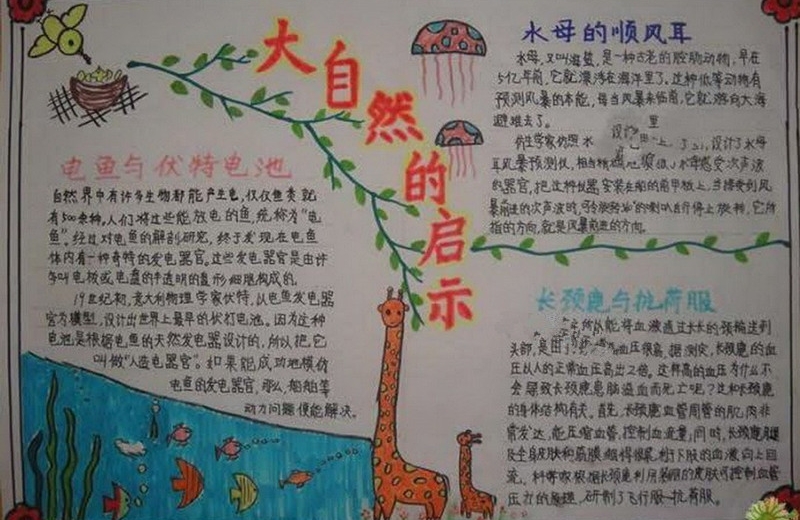 大自然的启示
水母的顺风耳
水母,又叫海蜇,是一种古老的腔肠动物,早在
5亿年前,它就漂浮在海洋里了。这种低等动物有
预测风暴的本能,每当风暴来临前,它就游向大海
避难去了。
仿生学家仿照水
设计了水母
耳风暴预测仪,相当精确地模拟了水母感受次声波
的器官,把这种仪器安装在船的前甲板上,当接受到风
暴的次声波时,可令旋转360°的喇叭自行停上旋转,它所
指的方向,就是风暴前进的方向。
电鱼与伏特电池
自然界中有许多生物都能产生电,仅仅鱼类就
有500余种。人们将这些能放电的鱼,统称为“电
鱼”。经过对电鱼的解剖研究,终于发现在电鱼
体内有一种奇特的发电器官。这些发电器官是由许
多叫电板或电盘的半透明的盘形细胞构成的。
19世纪初,意大利物理学家伏特,从电鱼发电器
官为模型,设计出世界上最早的伏打电池。因为这种
电池是根据电鱼的天然发电器设计的,所以把它
叫做“人造电器官”。如果能成功地模仿
电鱼的发电器官,那么,船舶等
动力问题便能解决。
长颈鹿与抗荷服
能将血液通过长长的颈输送到
头部,是由于血压很高。据测定,长颈鹿的血
压比人的正常血压高出2倍。这样高的血压为什么不
会导致长颈鹿患脑溢血而死亡呢?这和长颈鹿
的身体结构有关。首先,长颈鹿血管周管的肌肉非
常发达,能压缩血管,控制血流量;同时,长颈鹿腿
及全身皮肤和筋膜绷得很紧,利于下肢的血液向上回
流。科学家根据长颈鹿利用紧绷的皮肤可控制血管
压力的原理,研制了飞行服—抗荷服。